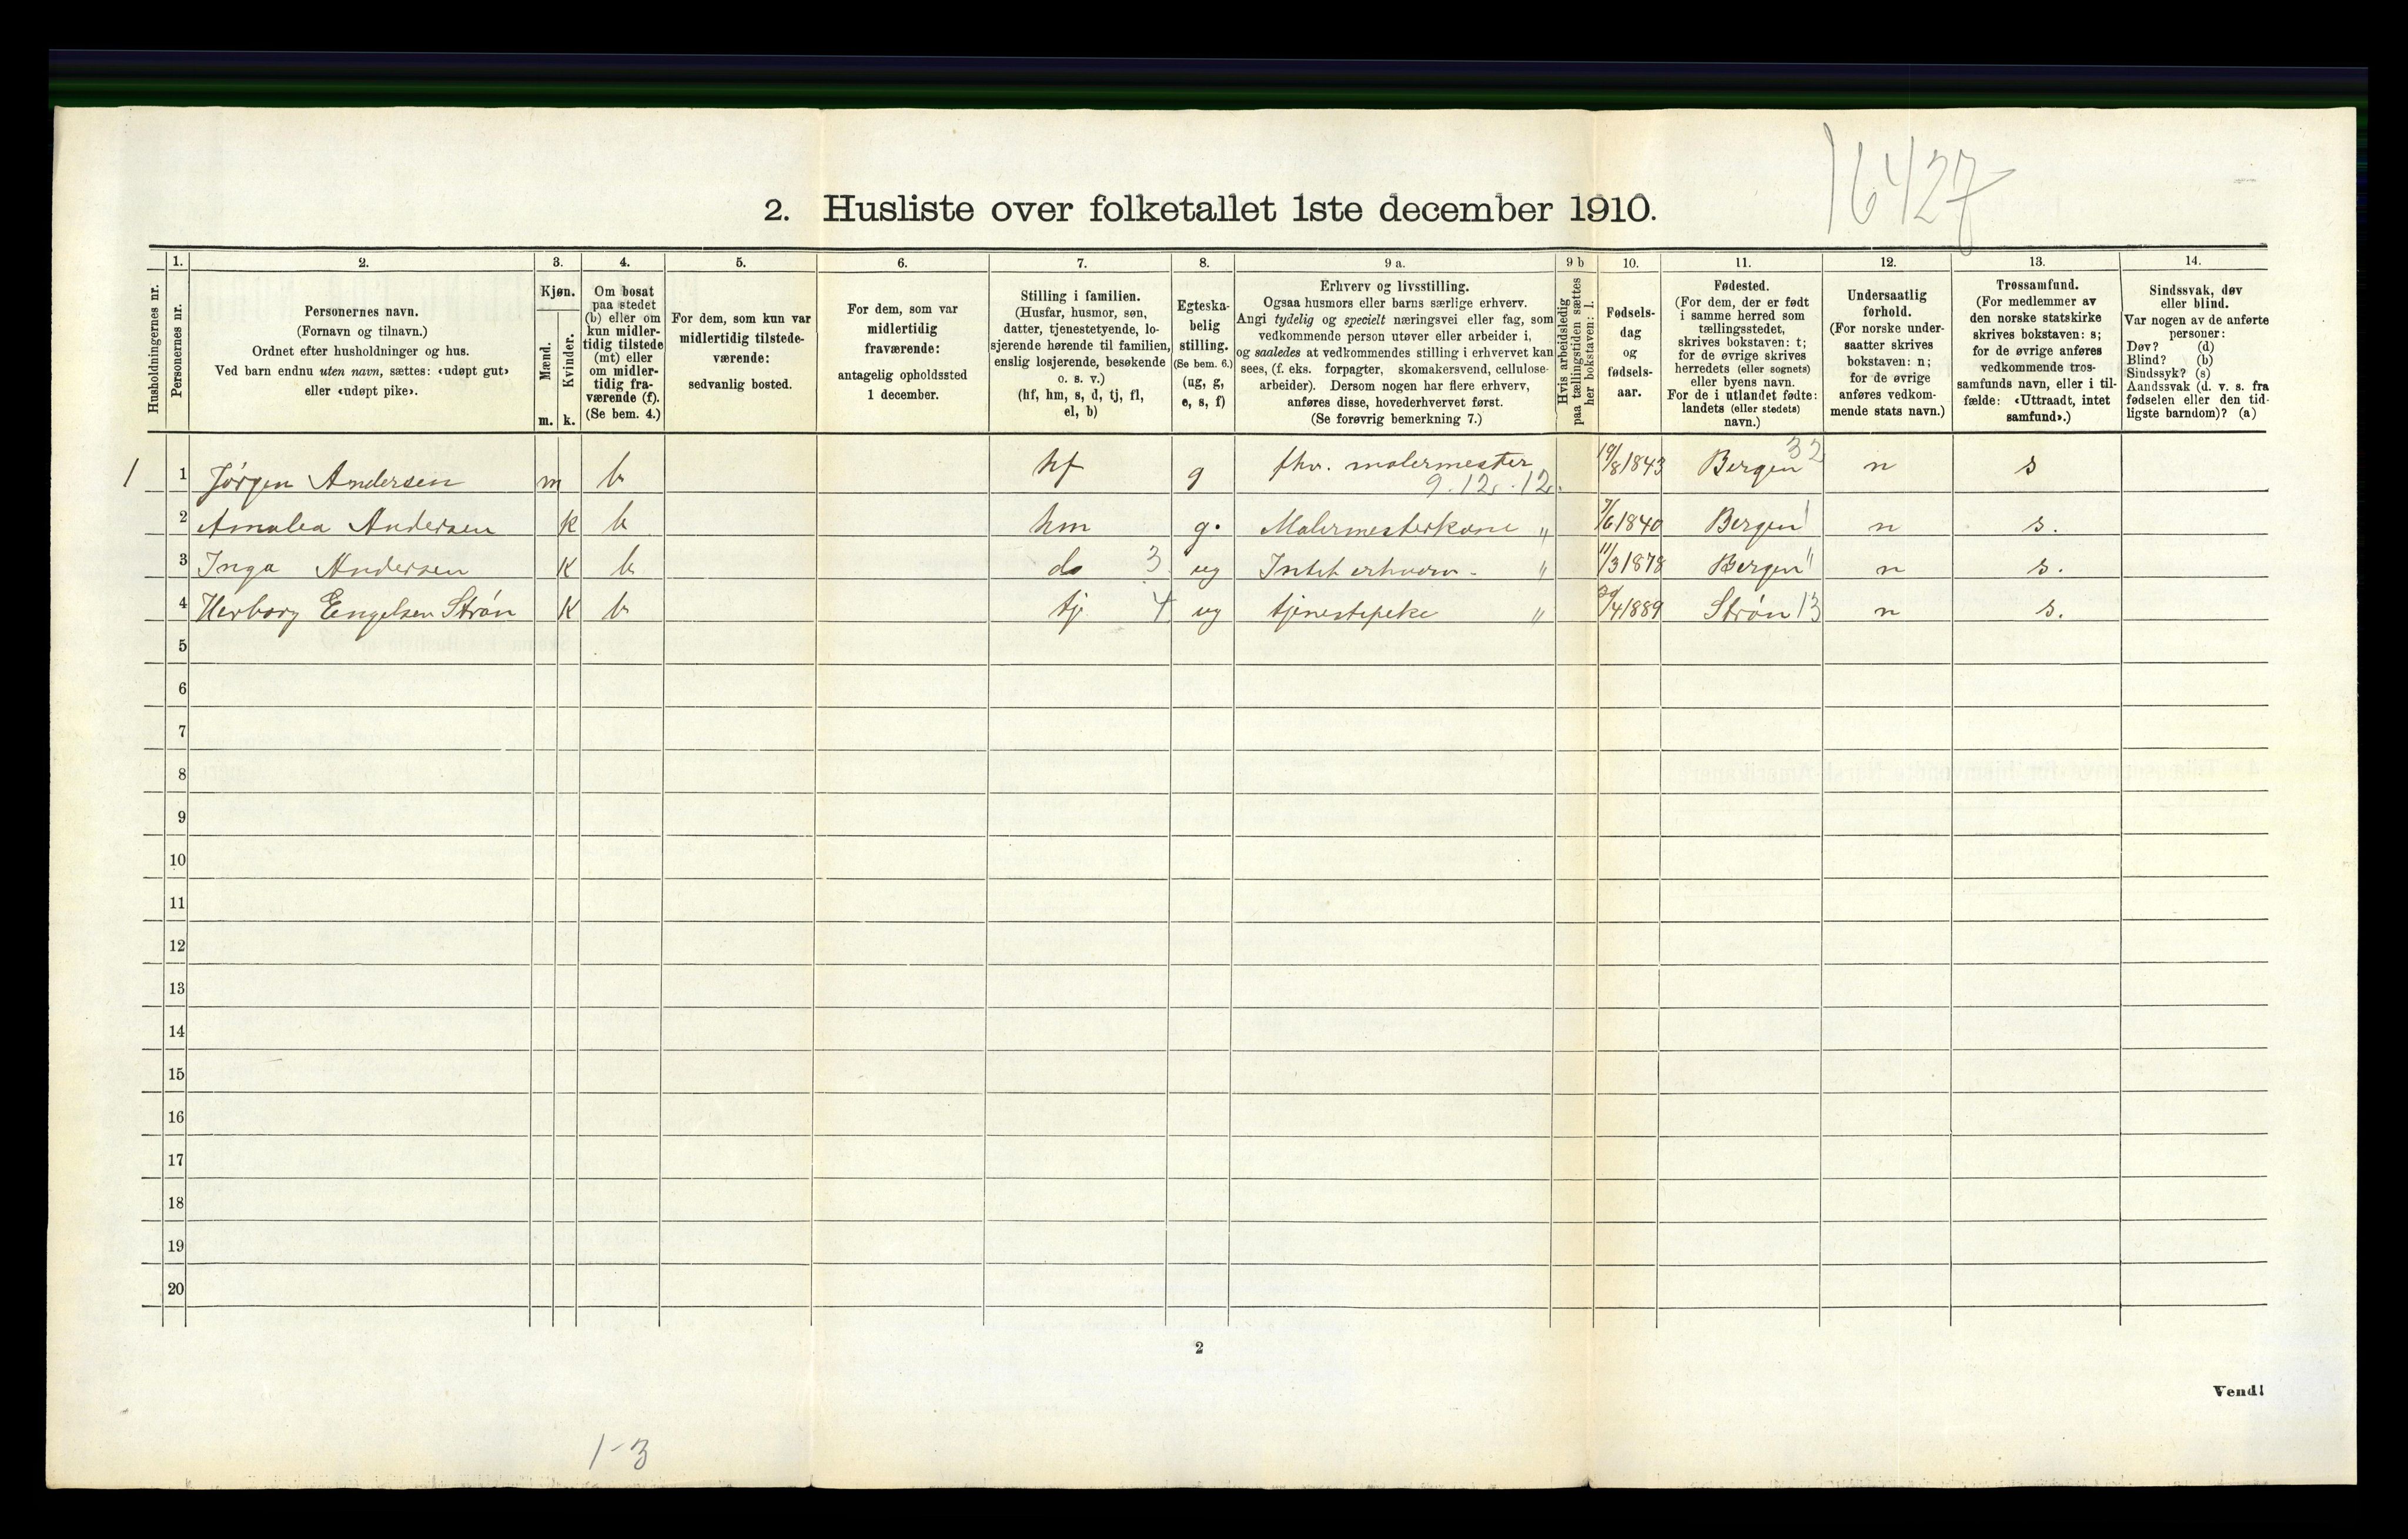 16427
2. Husliste over folketallet 1ste december 1910.
Husholdningernes nr.
1.
Personernes nr.
2.
Personernes navn.
(Fornavn og tilnavn.)
Ordnet efter husholdninger og hus.
Ved barn endnu uten navn, sættes: «udøpt gut»
eller «udøpt pike».
3.
Kjøn.
Mænd.
Kvinder.
m. k.
4.
Om bosat
paa stedet
(b) eller om
kun midler-
tidig tilstede
(mt) eller
om midler-
tidig fra-
værende (f).
(Se bem. 4.)
5.
For dem, som kun var
midlertidig tilstede-
værende:
sedvanlig bosted.
6.
For dem, som var
midlertidig
fraværende:
antagelig opholdssted
1 december.
7.
Stilling i familien.
(Husfar, husmor, søn,
datter, tjenestetyende, lo-
sjerende hørende til familien,
enslig losjerende, besøkende
o. s. v.)
(hf, hm, s, d, tj, fl,
el, b)
8.
Egteska-
belig
stilling.
(Se bem. 6.)
(ug, g,
e, s, f)
9 a.
Erhverv og livsstilling.
Ogsaa husmors eller barns særlige erhverv.
Angi tydelig og specielt næringsvei eller fag, som
vedkommende person utøver eller arbeider i,
og saaledes at vedkommendes stilling i erhvervet kan
sees, (f. eks. forpagter, skomakersvend, cellulose-
arbeider). Dersom nogen har flere erhverv,
anføres disse, hovederhvervet først.
(Se forøvrig bemerkning 7.)
9 b
Hvis arbeidsledig
paa tællingstiden sættes
her bokstaven: l.
10.
Fødsels-
dag
og
fødsels-
aar.
11.
Fødested.
(For dem, der er født
i samme herred som
tællingsstedet,
skrives bokstaven: t;
for de øvrige skrives
herredets (eller sognets)
eller byens navn.
For de i utlandet fødte:
landets (eller stedets)
navn.)
12.
Undersaatlig
forhold.
(For norske under-
saatter skrives
bokstaven: n;
for de øvrige
anføres vedkom-
mende stats navn.)
13.
Trossamfund.
(For medlemmer av
den norske statskirke
skrives bokstaven: s;
for de øvrige anføres
vedkommende tros-
samfunds navn, eller i til-
fælde: «Uttraadt, intet
samfund».)
14.
Sindssvak, døv
eller blind.
Var nogen av de anførte
personer:
Døv? (d)
Blind? (b)
Sindssyk? (s)
Aandssvak (d. v. s. fra
fødselen eller den tid-
ligste barndom)? (a)
1 1 Jørgen Andersen m b hf g fhv. malermester 19/8 1843 Bergen 32 n s
9.12.12.
2 Amalea Andersen k b hm g. Malermesterkone " 7/6 1840 Bergen n s.
3 Inga Andersen K b do 3 ug Intet erhverv - " 11/3 1878 Bergen " n s.
4 Herborg Engelsen Strøn K b tj 4 ug tjenestepeke " 29/4 1889 Strøn 13 n s.
5
6
7
8
9
10
11
12
13
14
15
16
17
18
19
20
2
Vend!
1-3